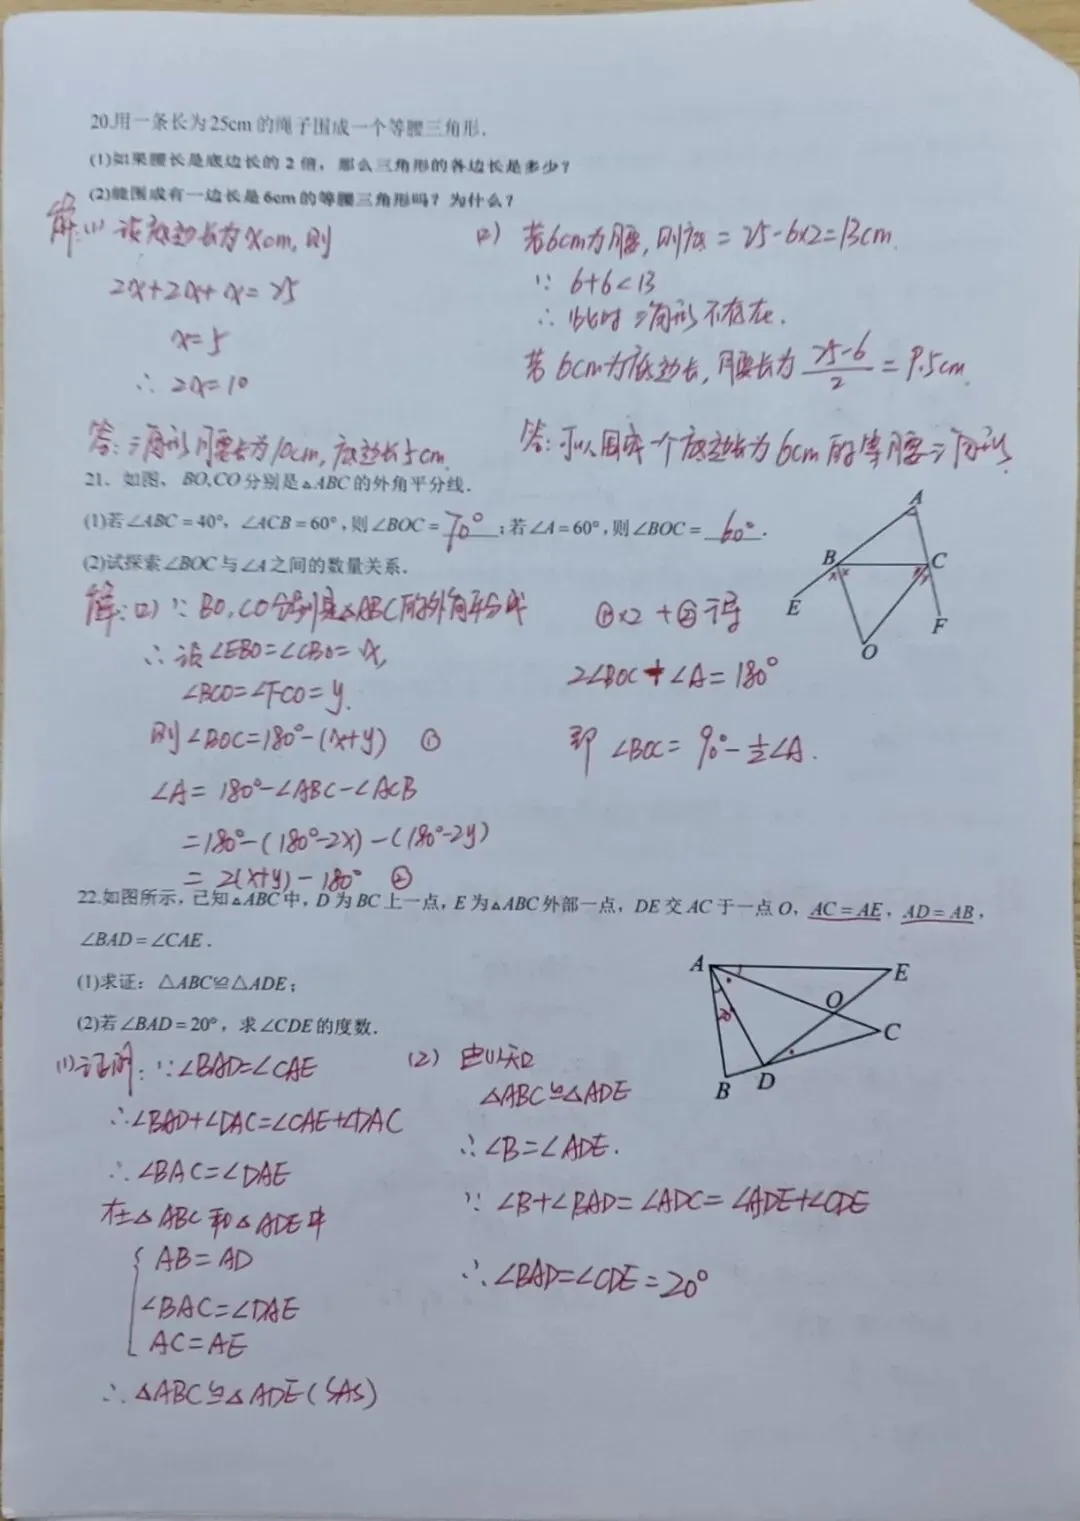 20.用一条长为25cm的绳子围成一个等腰三角形.
(1)如果腰长是底边长的2倍，那么三角形的各边长是多少?
(2)能围成有一边长是6cm的等腰三角形吗？为什么?
解:(1) 设底边长为xcm, 则
2x+2x+x=25
x=5
∴ 2x=10
答:三角形腰长为10cm, 底边长5cm.
(2) 若6cm为腰, 则底=25-6×2=13cm.
∵ 6+6<13
∴ 此时三角形不存在.
若6cm为底边长, 腰长为 (25-6)/2 = 9.5cm.
答: 可以围成一个底边长为6cm的等腰三角形.
21. 如图、BO,CO分别是△ABC的外角平分线.
(1)若∠ABC=40°, ∠ACB=60°,则∠BOC=70°;若∠A=60°,则∠BOC=60°.
(2)试探索∠BOC与∠A之间的数量关系.
A
B
C
E
F
O
解:(2) ∵ BO,CO分别是△ABC的外角平分线
∴ 设∠EBO=∠CBO=x,
∠BCO=∠FCO=y.
则∠BOC=180°-(x+y) ①
∠A=180°-∠ABC-∠ACB
=180°-(180°-2x)-(180°-2y)
=2(x+y)-180° ②
①×2+②可得
2∠BOC+∠A=180°
即 ∠BOC=90°-½∠A.
22.如图所示, 已知△ABC中, D为BC上一点, E为△ABC外部一点, DE交AC于一点O, AC=AE, AD=AB,
∠BAD=∠CAE.
(1)求证: △ABC≌△ADE;
(2)若∠BAD=20°, 求∠CDE的度数.
A
E
O
C
20°
B
D
(1)证明: ∵∠BAD=∠CAE
∴∠BAD+∠DAC=∠CAE+∠DAC
∴∠BAC=∠DAE
在△ABC和△ADE中
AB=AD
∠BAC=∠DAE
AC=AE
∴△ABC≌△ADE(SAS)
(2) 由(1)知
△ABC≌△ADE
∴∠B=∠ADE.
∵ ∠B+∠BAD=∠ADC=∠ADE+∠CDE
∴∠BAD=∠CDE=20°